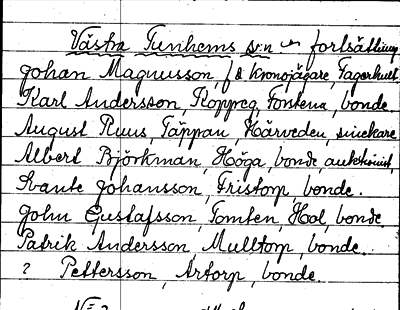 Västra Tunhems s:n fortsättning
Johan Magnusson, f d kronojägare, Fagerhult.
Karl Andersson, Kopperg, Fontena, bonde.
August Ruus, Täppan, Härveden, snickare
Albert Björkman, Höga, bonde, auktionist,
Svante Johansson, Fristorp, bonde.
John Gustafsson, Tomten, Hol, bonde.
Patrik Andersson, Mulltorp, bonde.
? Pettersson, Artorp, bonde.